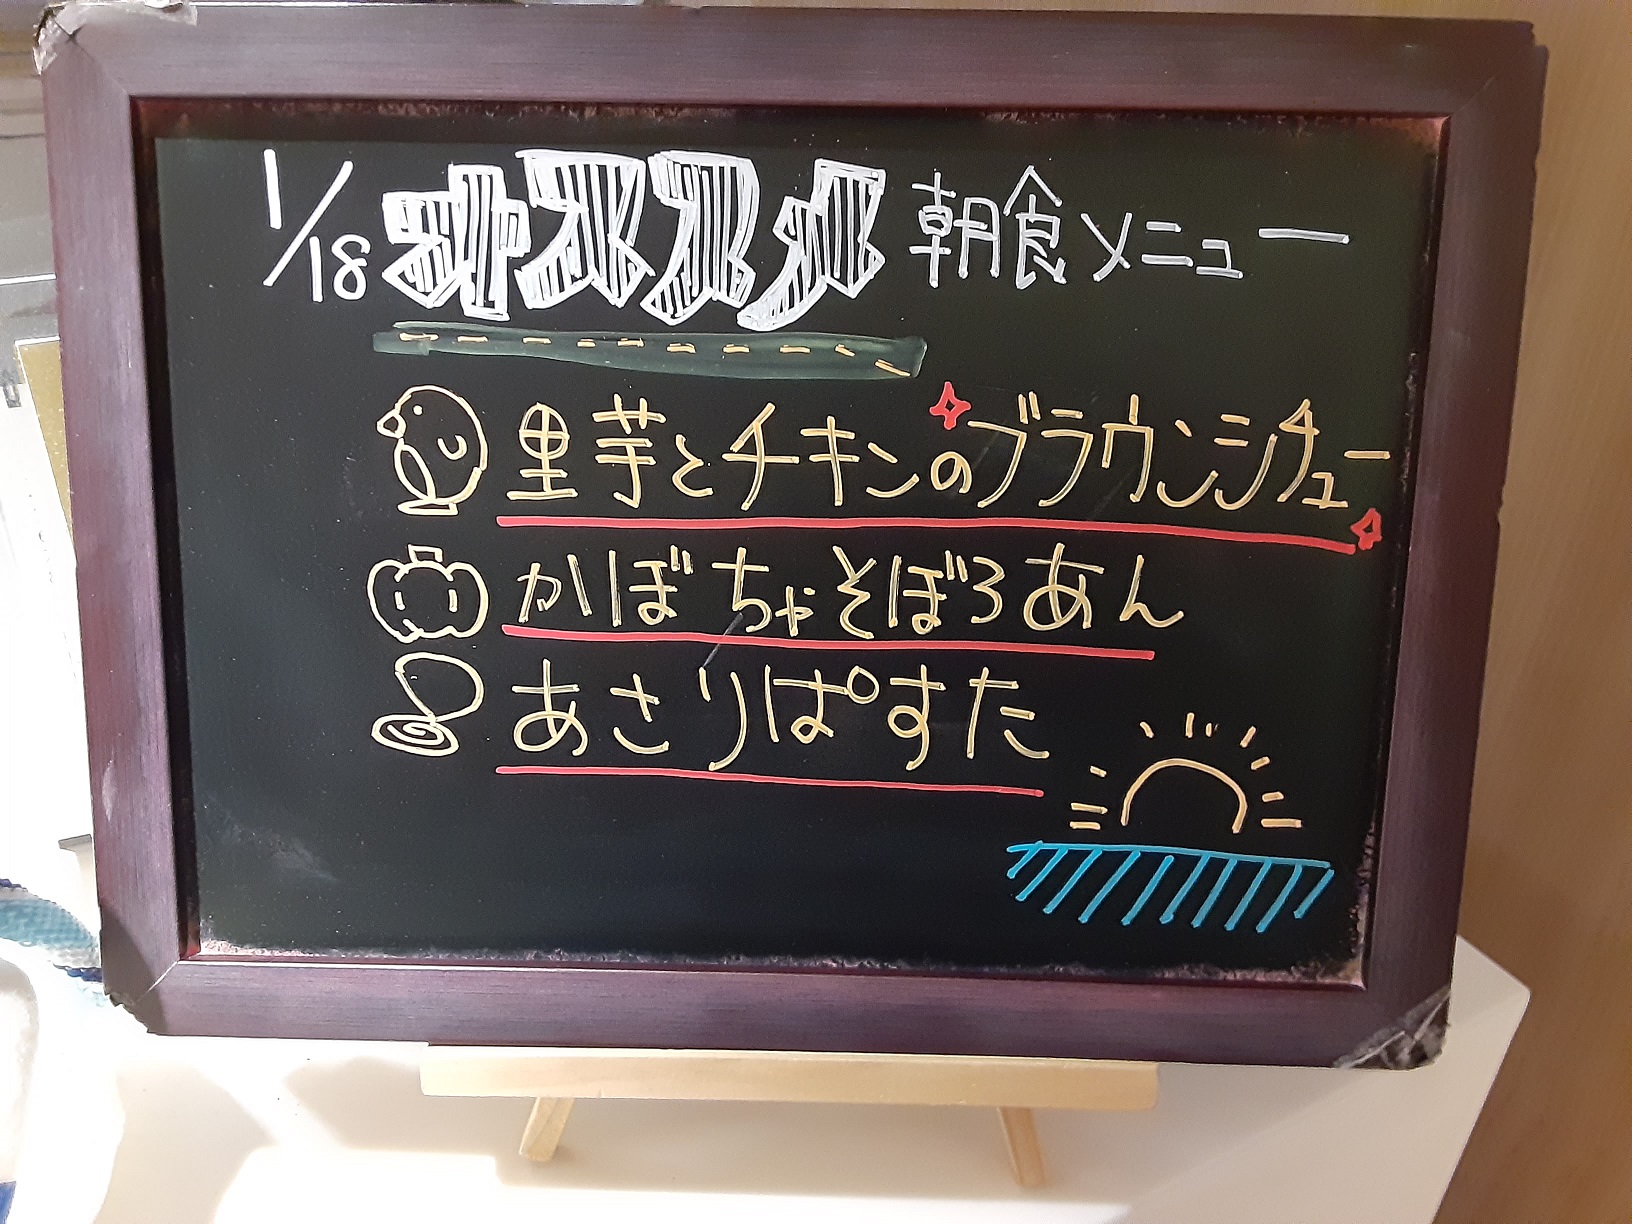 1/18 オススメ 朝食メニュー
里芋とチキンのブラウンシチュー
かぼちゃそぼろあん
あさりぱすた